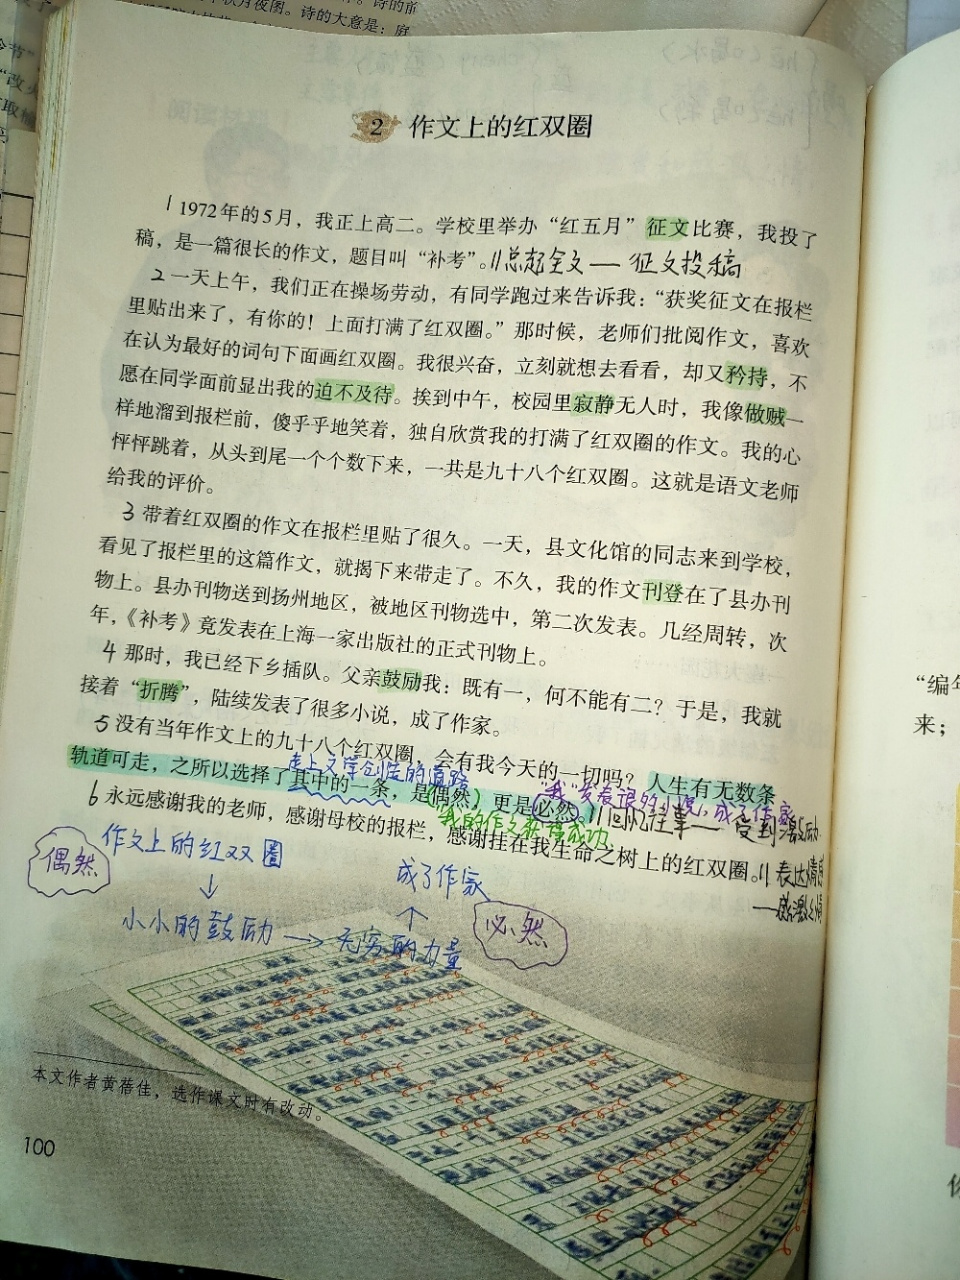 2 作文上的红双圈
1 1972年的5月，我正上高二。学校里举办“红五月”征文比赛，我投了
稿，是一篇很长的作文，题目叫“补考”。// 总起全文— 征文投稿
2 一天上午，我们正在操场劳动，有同学跑过来告诉我：“获奖征文在报栏
里贴出来了，有你的！上面打满了红双圈。”那时候，老师们批阅作文，喜欢
在认为最好的词句下面画红双圈。我很兴奋，立刻就想去看看，却又矜持，不
愿在同学面前显出我的迫不及待。挨到中午，校园里寂静无人时，我像做贼一
样地溜到报栏前，傻乎乎地笑着，独自欣赏我的打满了红双圈的作文。我的心
怦怦跳着，从头到尾一个个数下来，一共是九十八个红双圈。这就是语文老师
给我的评价。
3 带着红双圈的作文在报栏里贴了很久。一天，县文化馆的同志来到学校，
看见了报栏里的这篇作文，就揭下来带走了。不久，我的作文刊登在了县办刊
物上。县办刊物送到扬州地区，被地区刊物选中，第二次发表。几经周转，次
年，《补考》竟发表在上海一家出版社的正式刊物上。
4 那时，我已经下乡插队。父亲鼓励我：既有一，何不能有二？于是，我就
接着“折腾”，陆续发表了很多小说，成了作家。
5 没有当年作文上的九十八个红双圈，会有我今天的一切吗？人生有无数条
走上文学创造的道路
轨道可走，之所以选择了其中的一条，是（偶然），更是必然。// 回忆往事— 受到激励
“我”发表很多小说，成了作家
“我”的作文获得成功
6 永远感谢我的老师，感谢母校的报栏，感谢挂在我生命之树上的红双圈。// 表达情感
—感激之情
偶然
作文上的红双圈
↓
小小的鼓励 → 无穷的力量
↑
成了作家
必然
本文作者黄蓓佳，选作课文时有改动。
100
“编年
来；